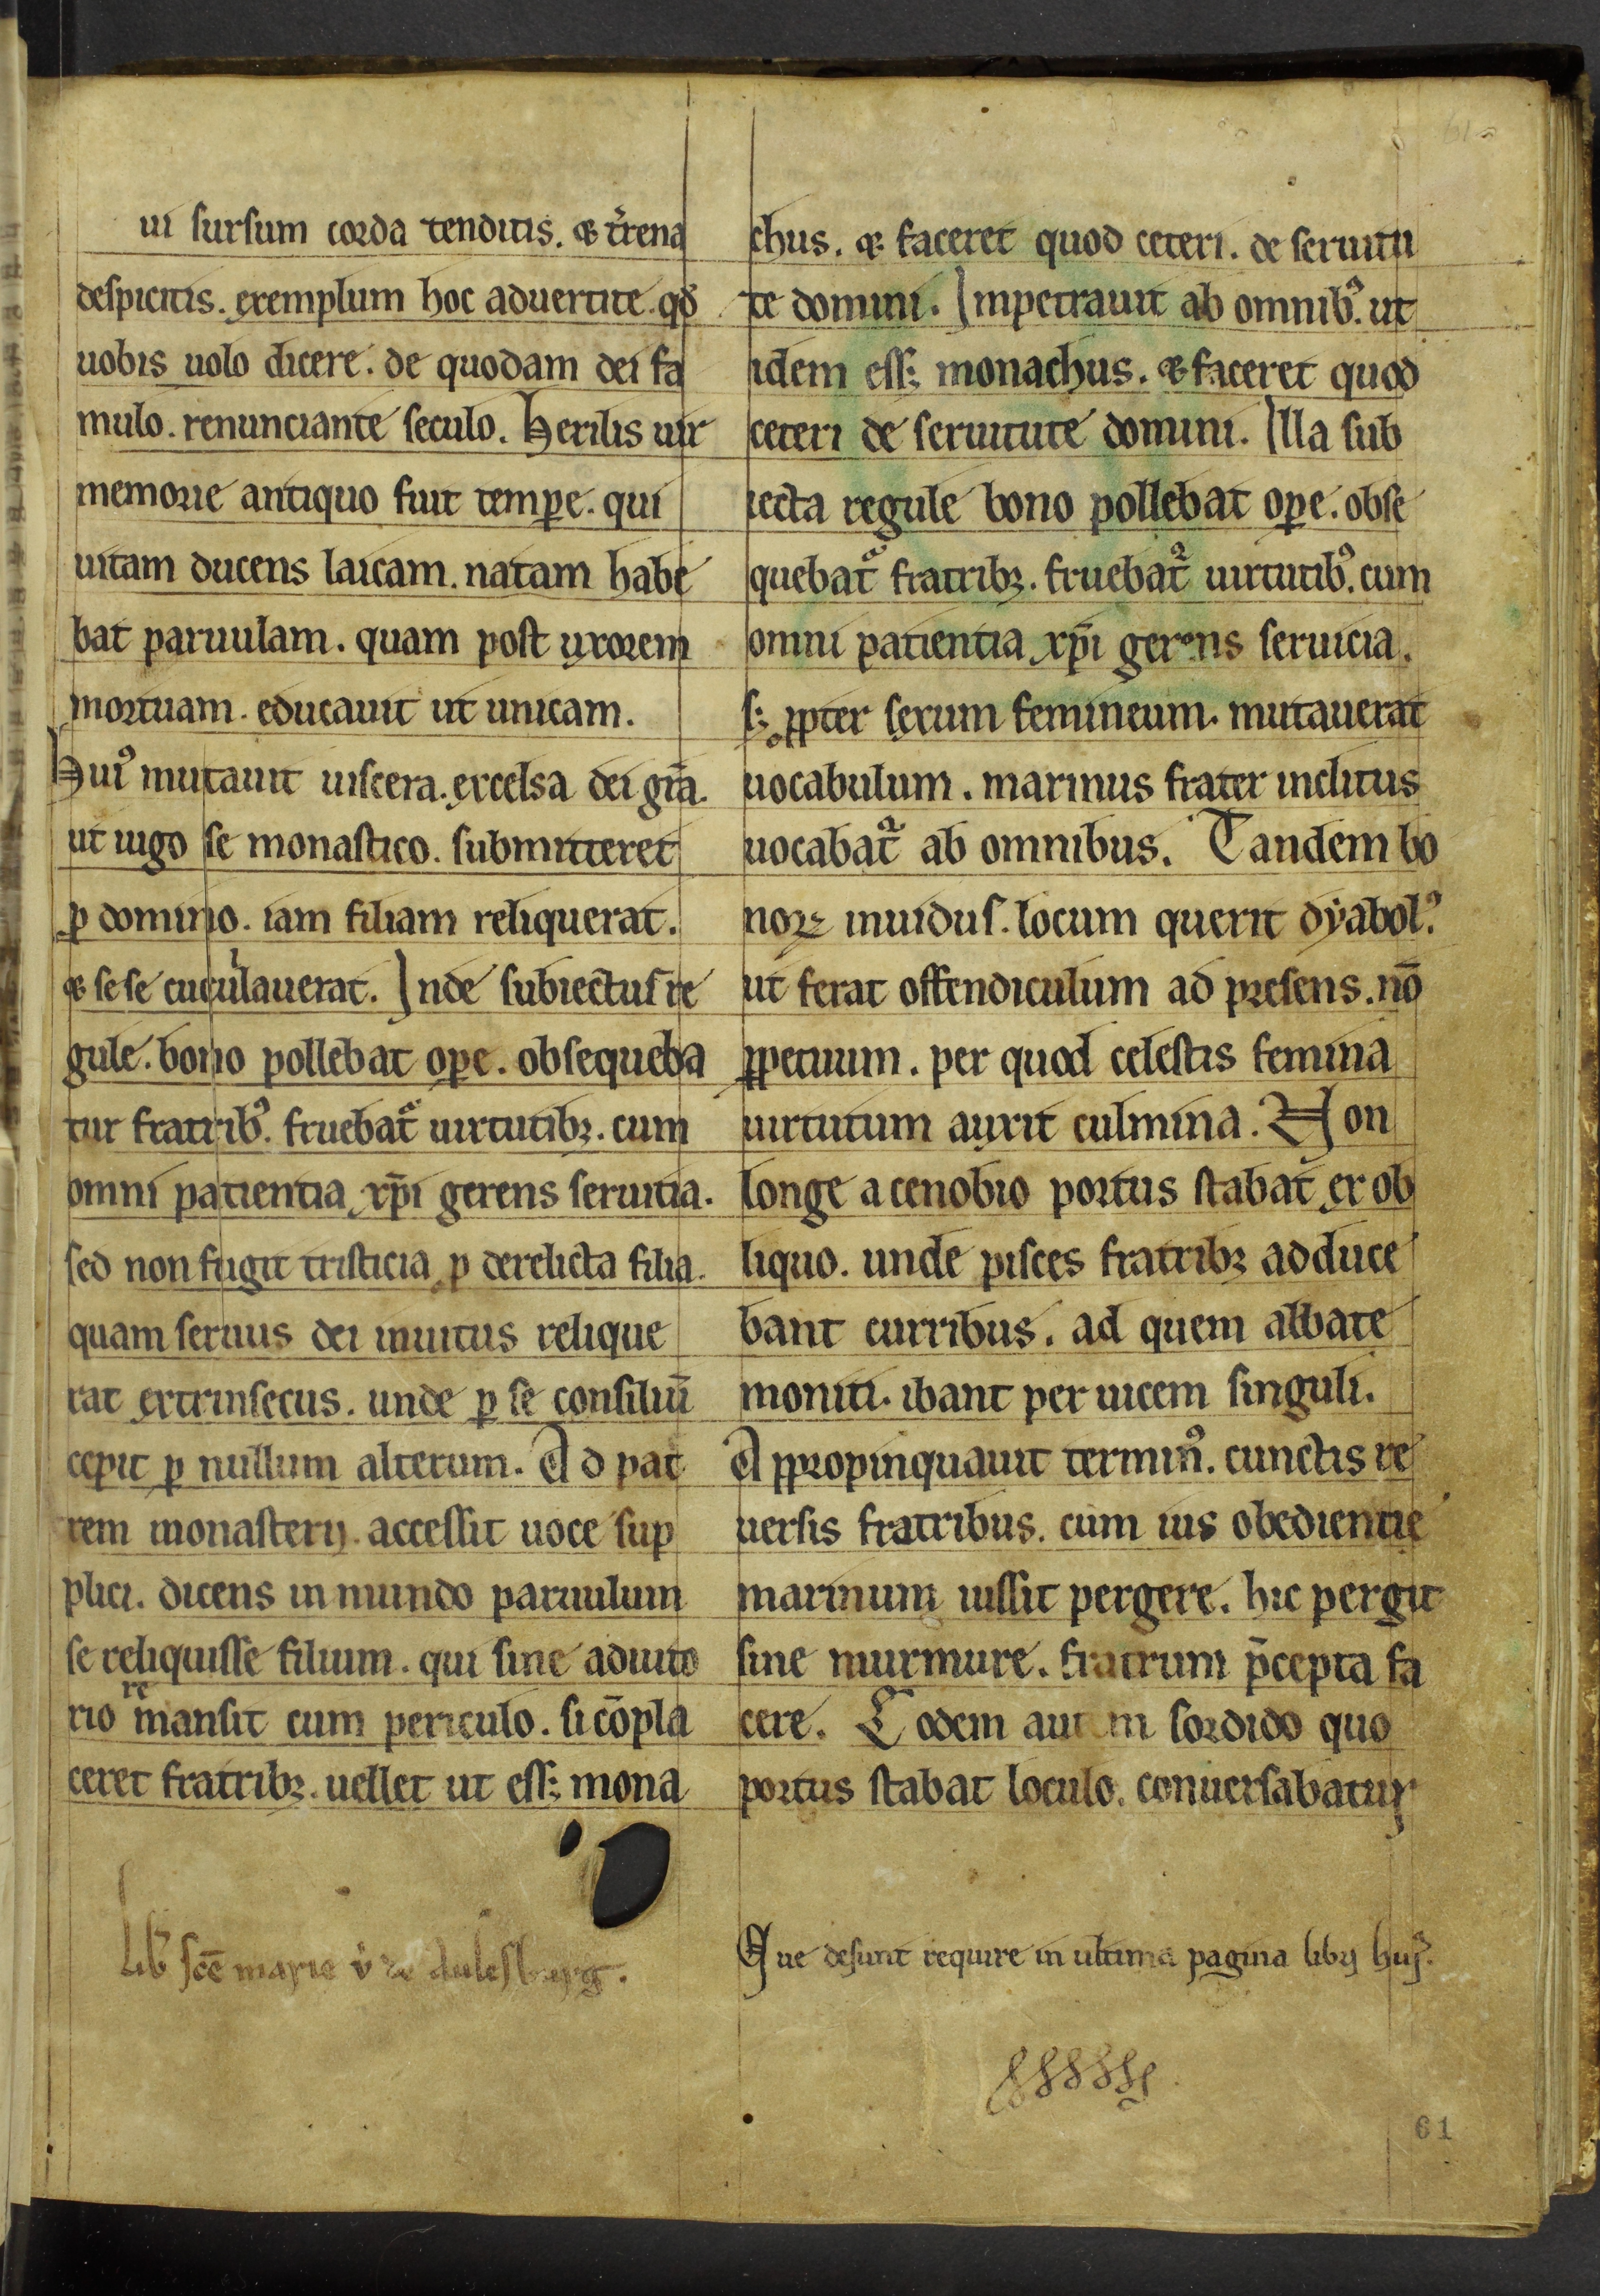 ui sursum corda tenditis. ⁊ t̉rena
despicitis. exemplum hoc aduertite. qđ
uobis uolo dicere. de quodam dei fa
mulo. renunciante seculo. Herilis uir
memorie antiquo fuit tempe̲. qui
uitam ducens laicam. natam habe
bat paruulam. quam post uxorem
mortuam. educauit ut unicam.
Hui᷒ mutauit uiscera. excelsa dei gr̄a.
ut iugo se monastico. submitteret
ꝓ domino. iam filiam reliquerat.
⁊ sese cucullauerat. Inde subiectus re
gule. bono pollebat oꝑe. obsequeba
tur fratrib᷒. fruebat᷑ uirtutibꝫ. cum
omni patientia xp̄i gerens seruitia.
sed non fugit tristicia ꝓ derelicta filia.
quam seruus dei inuitus relique
rat extrinsecus. unde ꝑ se consiliū
cepit ꝑ nullum alterum. Ad pat
rem monasterij. accessit uoce sup
plici. dicens in mundo paruulum
se reliquisse filium. qui sine adiuto
rio remansit cum periculo. si cōpla
ceret fratribꝫ. uellet ut essꝫ mona
chus. ⁊ faceret quod ceteri. de seruitu
te domini. Inpetrauit ab omnib᷒. ut
idem essꝫ monachus. ⁊ faceret quod
ceteri de seruitute domini. Illa sub
iecta regule bono pollebat oꝑe. obse
quebat᷑ fratribꝫ. fruebat᷑ uirtutib᷒. cum
omni patientia xp̄i gerens seruicia.
sꝫ ꝓpter sexum femineum. mutauerat
uocabulum. marinus frater inclitus
uocabat᷑ ab omnibus. Tandem bo
noꝝ inuidus. locum querit dyabol᷒.
ut ferat offendiculum ad presens. nō
ꝑpetuum. per quod celestis femina
uirtutum auxit culmina. Non
longe a cenobio portus stabat ex ob
liquo. unde pisces fratribꝫ adduce
bant curribus. ad quem abbate
moniti. ibant per uicem singuli.
Appropinquauit termin᷒. cunctis re
uersis fratribus. cum ius obedientie
marinum iussit pergere. hic pergit
sine murmure. fratrum p̄cepta fa
cere. Eodem aut m sordido quo
portus stabat loculo. conuersabatur
Lib̉ sc̄e marie v̉ de aulesburg.
Que desunt require in ultima pagina libri hui᷒.
61